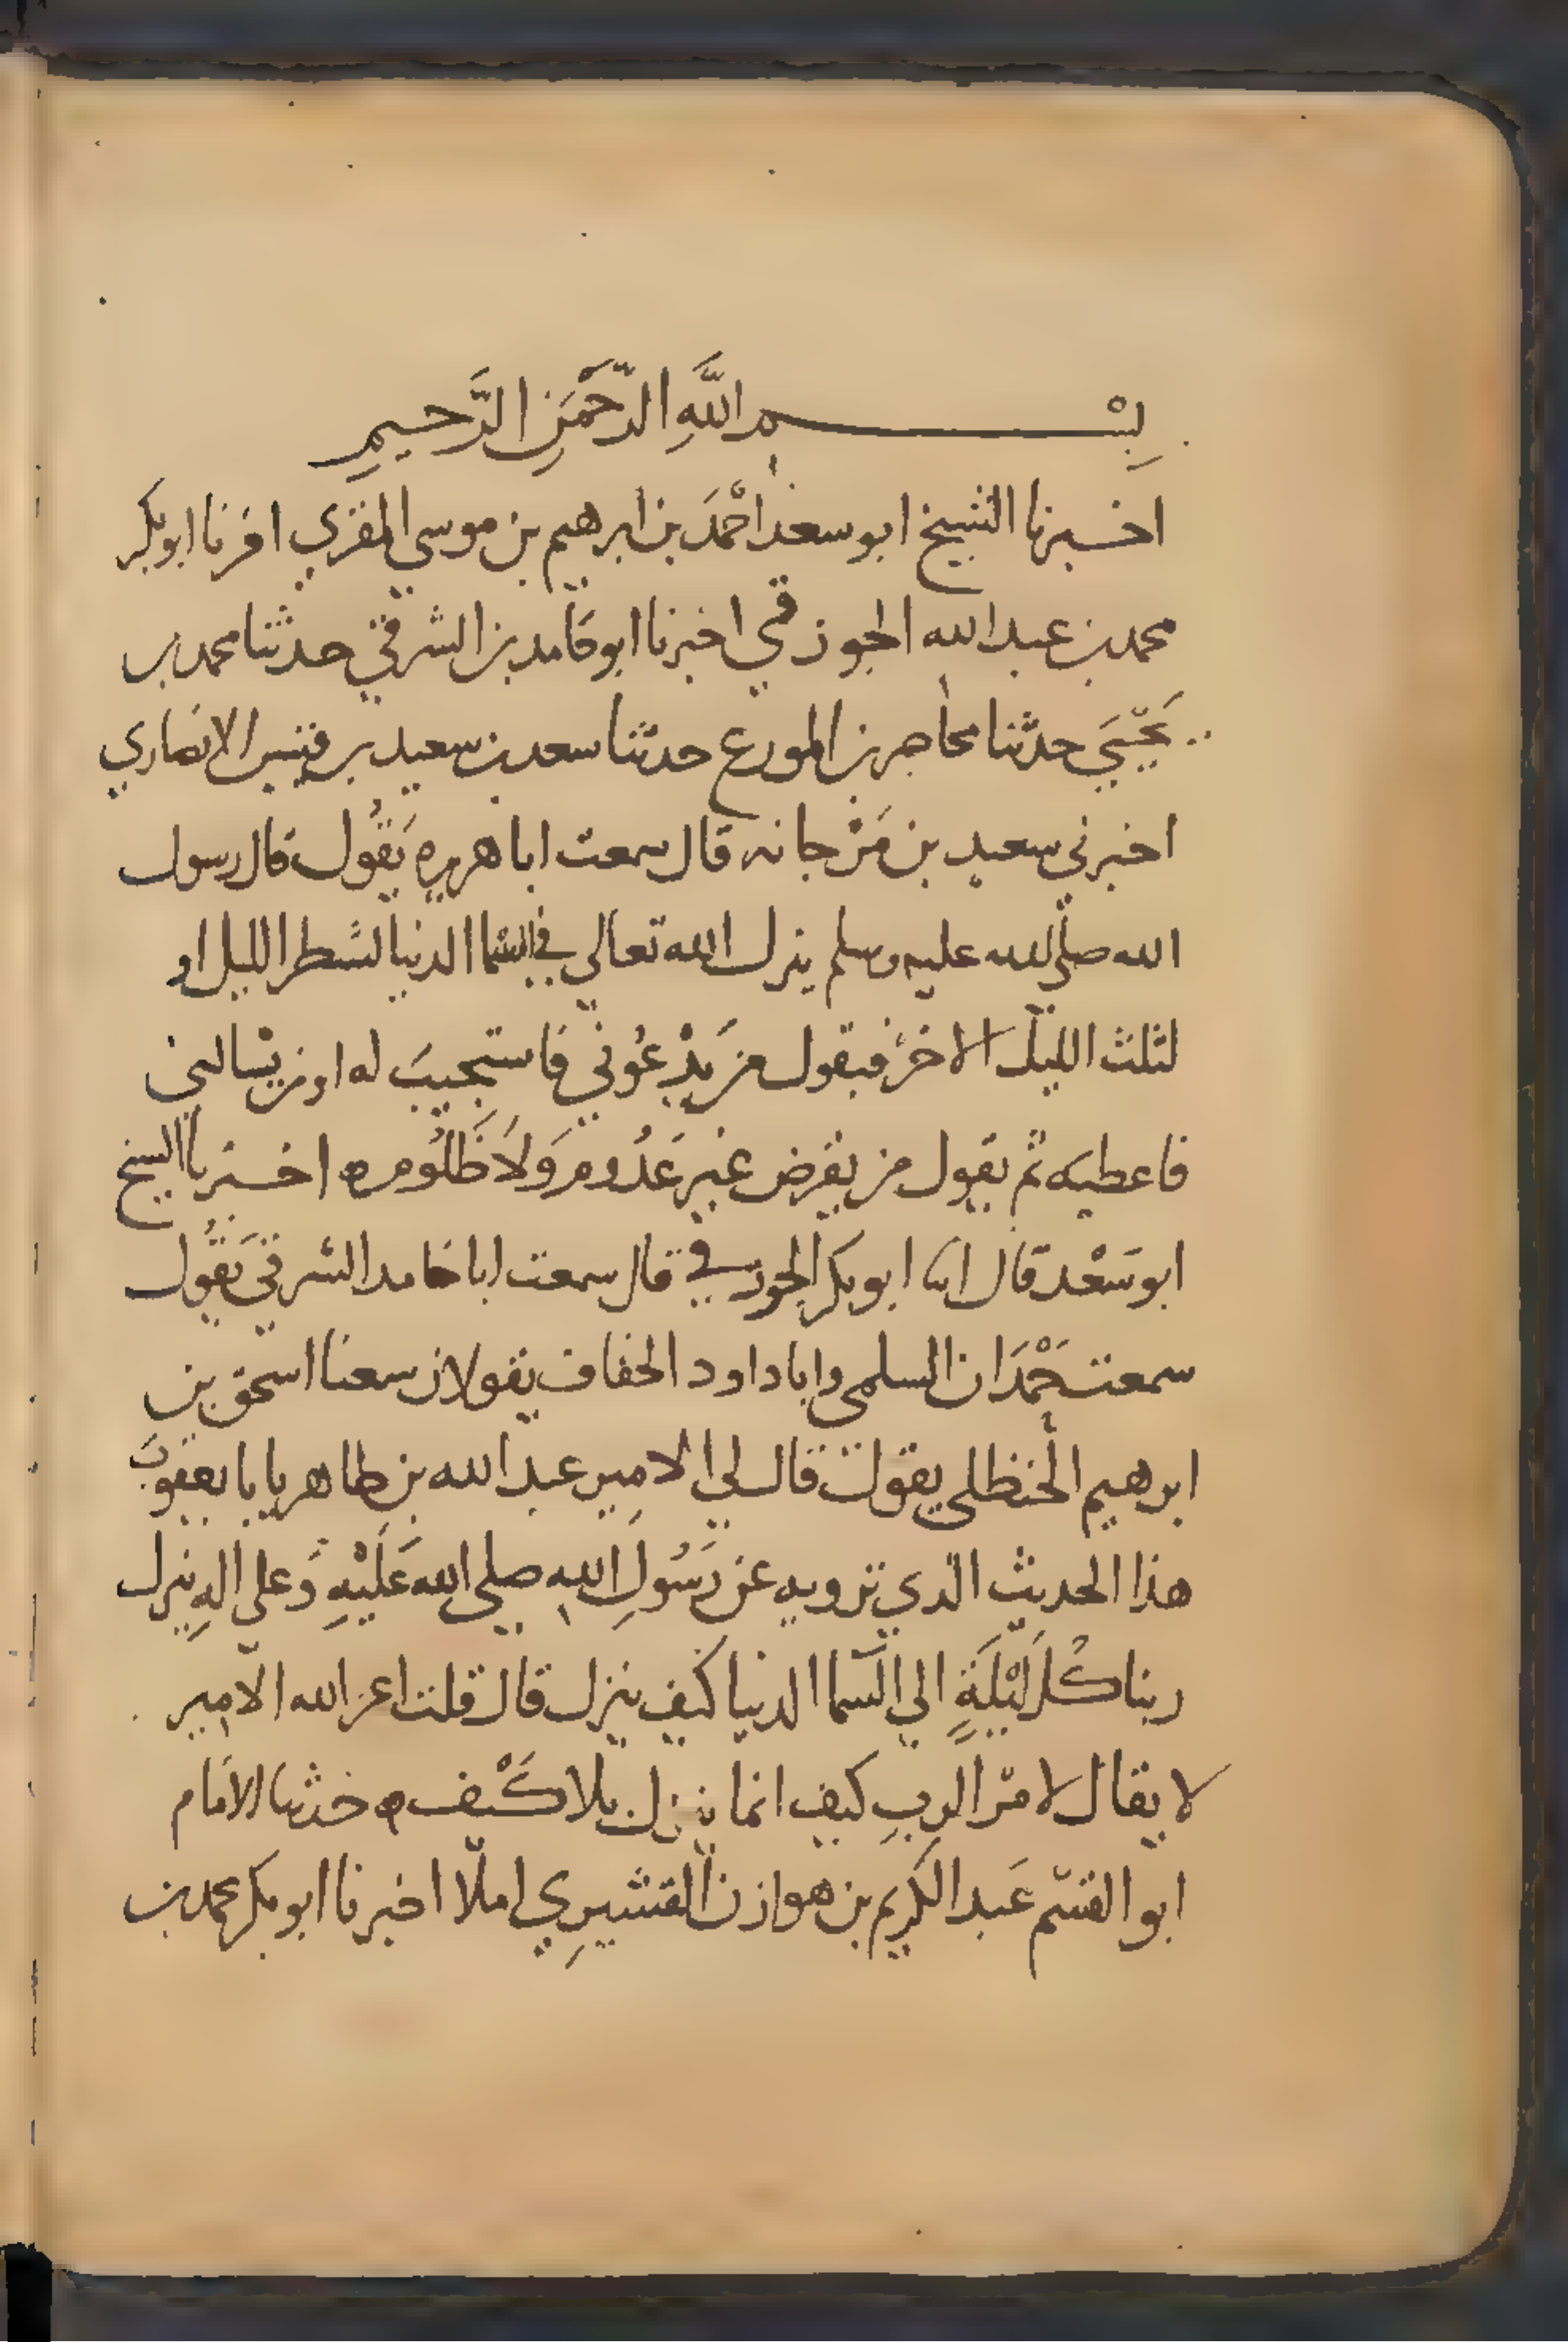 بِسْم اللَّهِ الرَّحْمَنِ الرَّحِيمِ
اخبرنا الشيخ ابو سعد احْمَدَ بن ابرهيم بن موسي المقري اخرنا ابو بكر
محمد بن عبد الله الجوزقي اخبرنا ابو حَامد بن الشرقي حدثنا محمد بن
يَحْيَي حدثنا محاضر بن المورع حدثنا سعد بن سعيد بن قيس الانصاري
اخبرني سعيد بن مَرْجانه قال سمعت ابا هريره يَقُول قال رسول
الله صلى الله عليه وسلم ينزل الله تعالي في السما الدنيا لشطر الليل او
لثلث الليل الاخر فيقول من يَدْعُوني فاستجيبَ له او من يسالني
فاعطيه ثم يقول من يقرض غير عَدُوم وَلَا ظَلُوم ه اخبرنا الشيخ
ابو سَعْد قال انا ابو بكر الجوزقي قال سمعت ابا حامد الشرقي يَقُول
سمعت حَمْدَان السلمي وابا داود الخفاف يقولان سمعنا اسحق بن
ابرهيم الحنظلي يقول قال لي الامير عبد الله بن طاهر يابا يعقوبَ
هذا الحديث الذي ترويه عن رَسُولِ الله صلى الله عَلَيْهِ وَعلى الهِ ينزل
ربنا كُلَّ لَيْلَةٍ الي السما الدنيا كيف ينزل قال قلت اعز الله الامير
لا يقال لامر الربِ كيف انما ينزل بلا كَيْف ه حدثنا الامَام
ابو القسم عَبد الكريم بن هوازن القشيرِي املا اخبرنا ابو بكر محمد بن